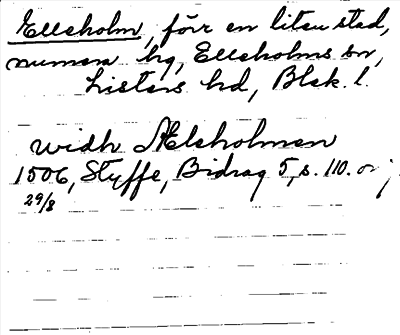 Elleholm, förr en liten stad,
numera hg, Elleholms sn,
Listers hd, Blek. l.
widh Ælsholmen
1506, Styffe, Bidrag 5, s. 110. or j
29/8